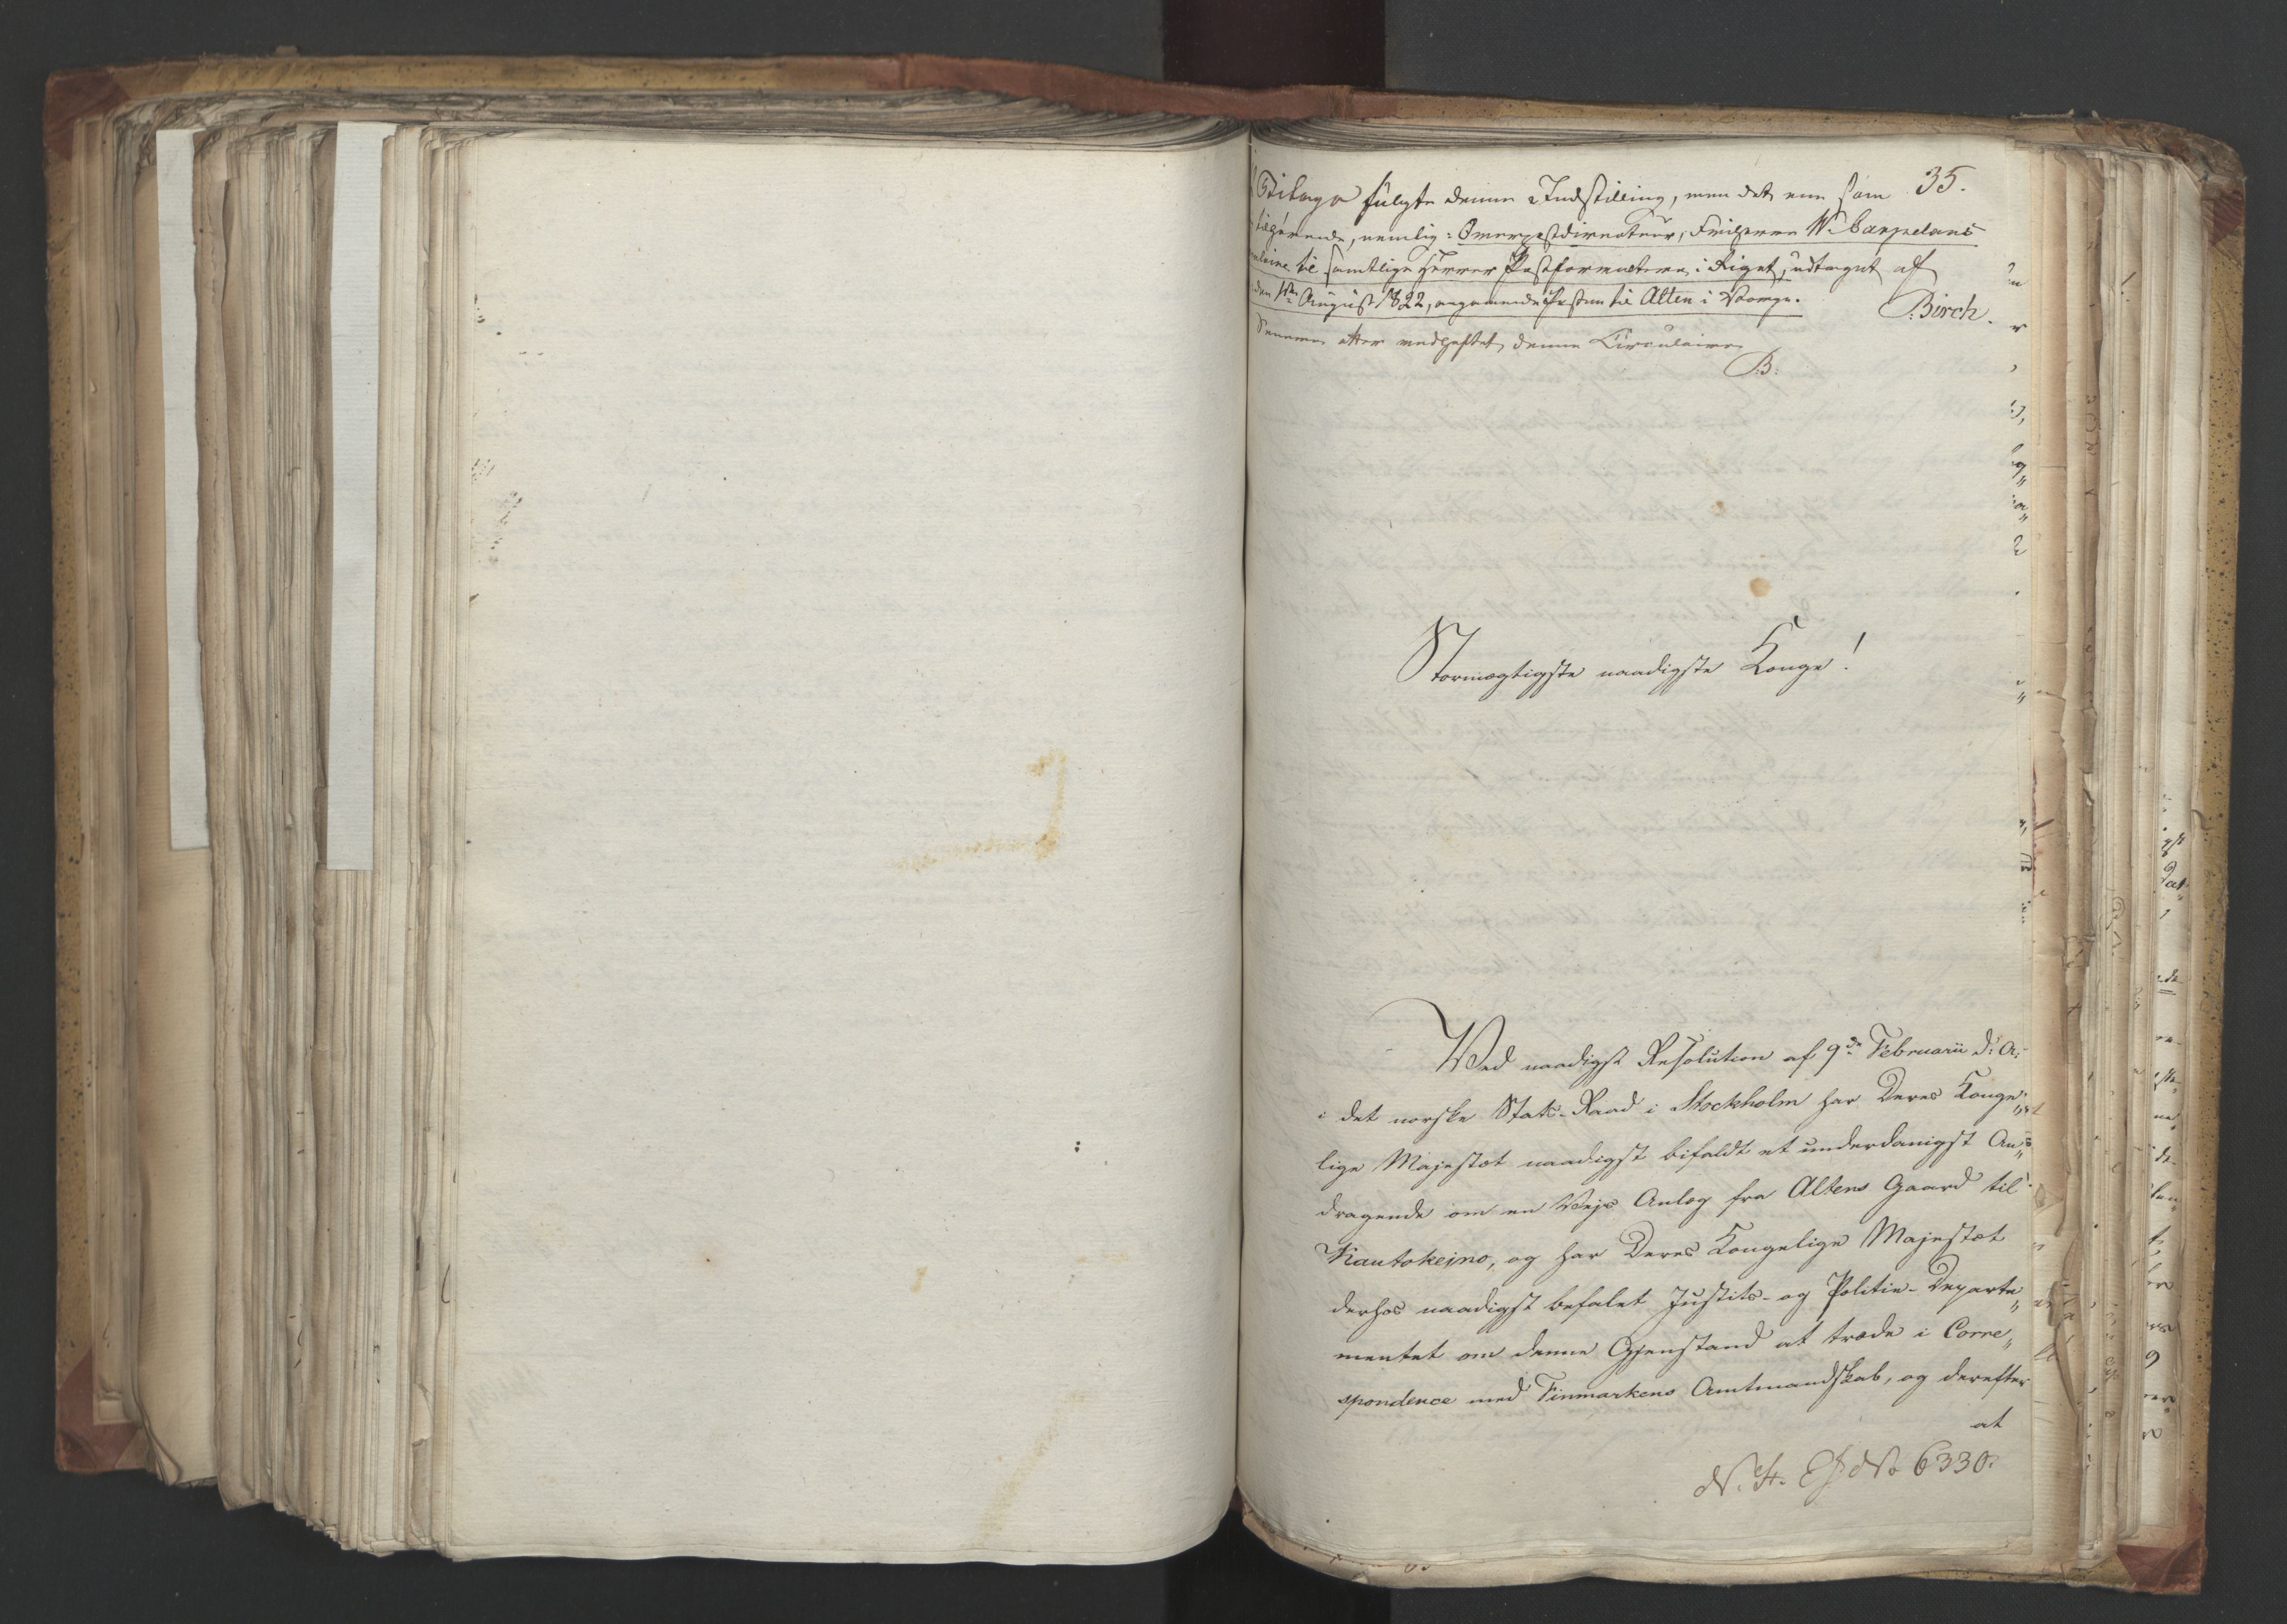 35.
Bilage fulgte denne Indstilling, men det ene som
nemlig: Överpostdirecteur, Friherre W. Carpelans
til samtlige Herrer Postforvaltere i Riget, udtaget af
den August 1822, angaaende Posten til Alten i Norge.
Birch.
Senere atter vedheftet denne Circulaire
B:
Stormægtigste naadigste Konge!
Ved naadigst Resolution af 9de Februarii d: A:
i det norske Stats-Raad i Stockholm har Deres Konge„
lige Majestæt naadigst bifaldt et underdanigst An„
dragende om en Vejs Anlæg fra Altens Gaard til
Kautokejno, og har Deres Kongelige Majestæt
derhos naadigst befalet Justits- og Politie-Departe„
mentet om denne Gjenstand at træde i Corre„
spondence med Finmarkens Amtmandskab, og derefter
at
No 6330.